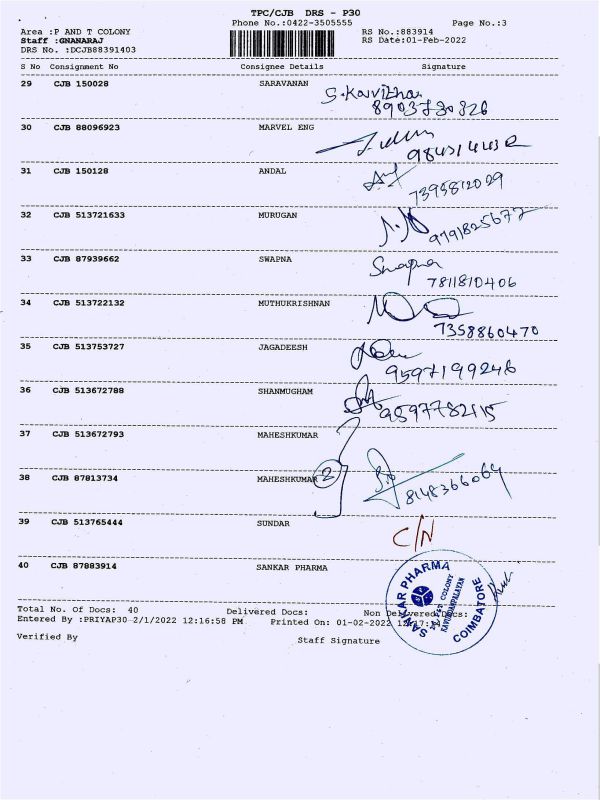 TPC/CJB DRS - P30
Phone No.:0422-3505555 Page No.:3
Area :P AND T COLONY RS No.:883914
Staff :GNANARAJ RS Date:01-Feb-2022
DRS No. :DCJB88391403
S No Consignment No Consignee Details Signature
29 CJB 150028 SARAVANAN
8903730826
30 CJB 88096923 MARVEL ENG
31 CJB 150128 ANDAL
7395812029
32 CJB 513721633 MURUGAN
9791825677
33 CJB 87939662 SWAPNA Swapna
7811810406
34 CJB 513722132 MUTHUKRISHNAN
7358860470
35 CJB 513753727 JAGADEESH
9597199246
36 CJB 513672788 SHANMUGHAM
9597782115
37 CJB 513672793 MAHESHKUMAR
38 CJB 87813734 MAHESHKUMAR 2
8148366064
39 CJB 513765444 SUNDAR C/N
40 CJB 87883914 SANKAR PHARMA
SANKAR PHARMA COIMBATORE
Total No. Of Docs: 40 Delivered Docs: Non Delivered Docs:
Entered By :PRIYAP30 2/1/2022 12:16:58 PM Printed On: 01-02-2022
Verified By Staff Signature